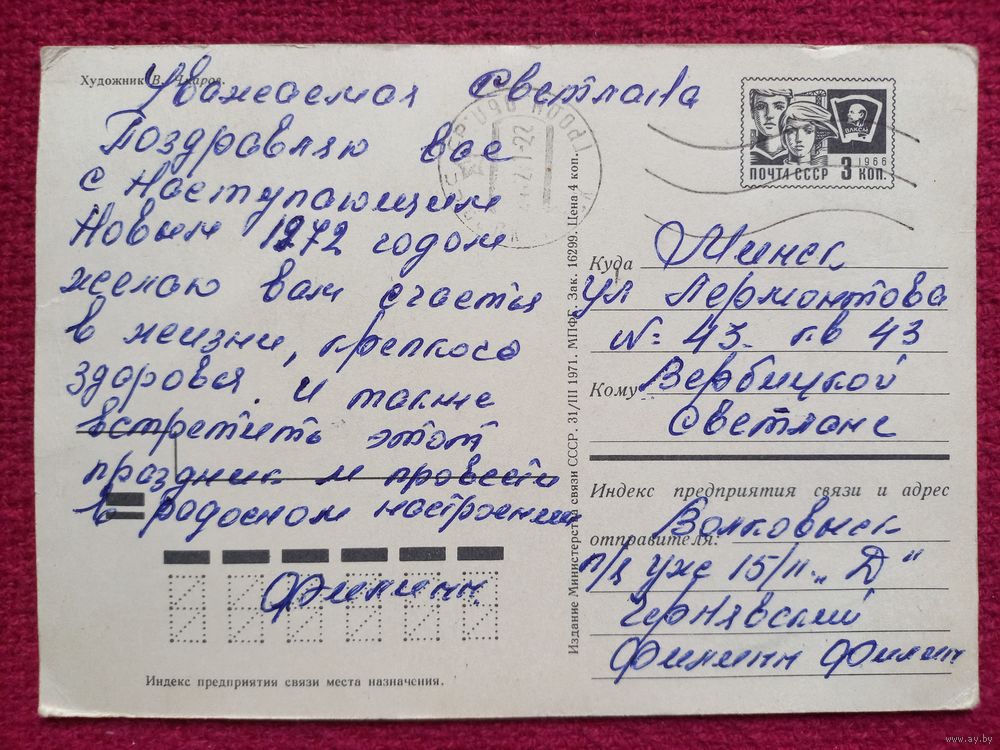 Художник В.
Уважаемая Светлана
Поздравляю вас
с наступающим
Новым 1972 годом
желаю вам счастья
в жизни, крепкого
здоровья. и также
встретить этот
праздник и провести
в радосном настроении
Филипп
Индекс предприятия связи места назначения.
Издание Министерства связи СССР. 31/III 1971. МПФГ. Зак. 16299. Цена 4 коп.
ВЛКСМ
1966
ПОЧТА СССР 3 КОП.
Куда Минск
ул Лермонтова
№ 43. кв 43
Кому Вербицкой
Светлане
Индекс предприятия связи и адрес
отправителя: Волковыск
п/я уж 15/11 „Д“
Чернявский
Филипп
www.ay.by